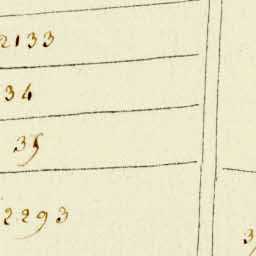 2133
34
35
2293